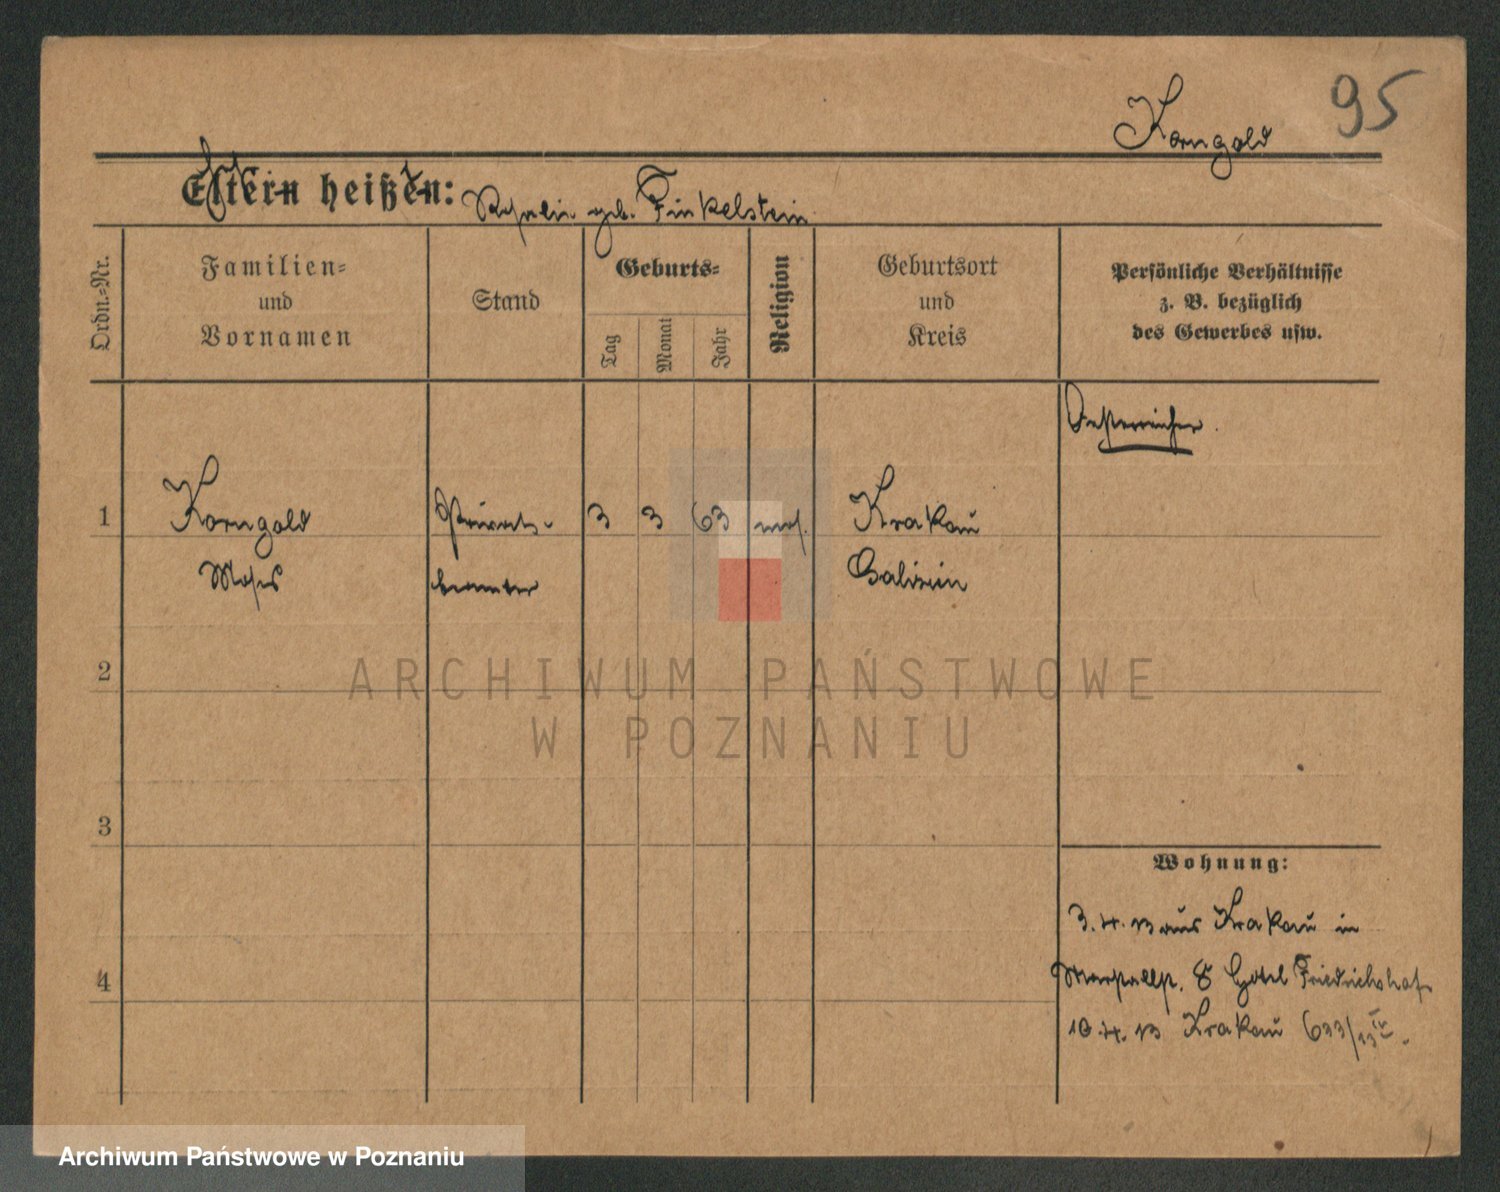 95
Korngold
Eltern heißen:
geb. Finkelstein
Ordn.-Nr.
Familien-
und
Vornamen
Stand
Geburts-
Tag
Monat
Jahr
Religion
Geburtsort
und
Kreis
Persönliche Verhältnisse
z. B. bezüglich
des Gewerbes usw.
Oesterreicher.
1
Korngold
Privat-
3
3
63
mos.
Krakau
Moses
beamter
Galizien
2
3
4
Wohnung:
3. 4. 13 aus Krakau in
8 Hotel Friedrichshof
10. 4. 13 Krakau 633/13
ARCHIWUM PAŃSTWOWE
W POZNANIU
Archiwum Państwowe w Poznaniu